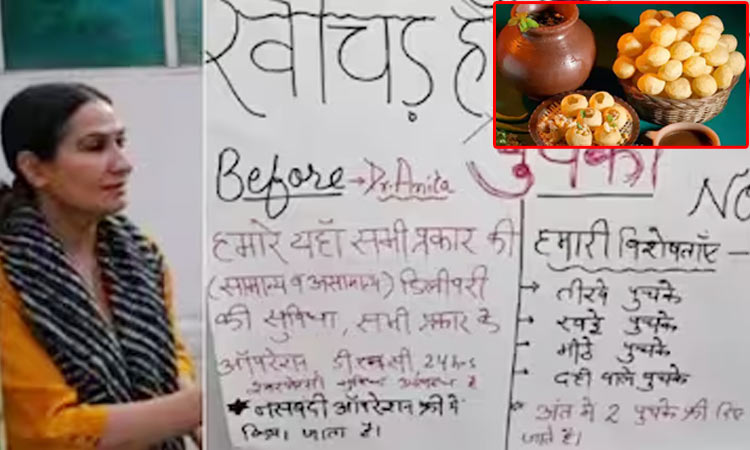 खीचड़ हॉ
पुचका
Before → Dr. Anita
हमारे यहाँ सभी प्रकार की
(सामान्य व असामान्य) डिलीवरी
की सुविधा, सभी प्रकार के
ऑपरेशन डी एन सी 24hrs
सुविधा उपलब्ध है
* नसबंदी ऑपरेशन फ्री में
किया जाता है।
NO
हमारी विशेषताएँ —
→ तीखे पुचके
→ खट्टे पुचके
→ मीठे पुचके
→ दही वाले पुचके
* अंत में 2 पुचके फ्री दिए
जाते है।